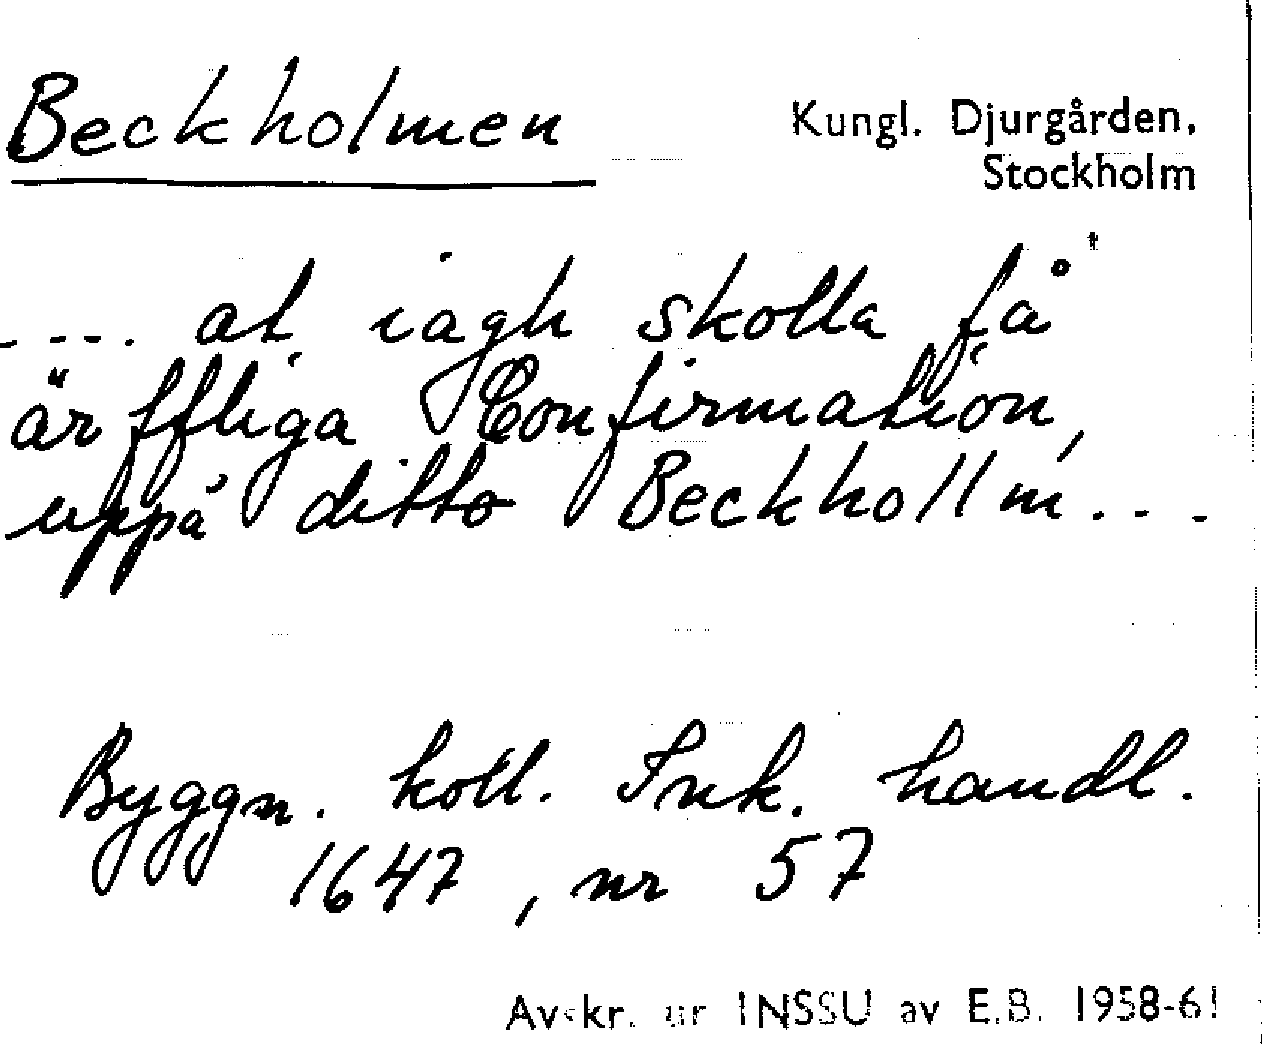 Beckholmen
Kungl. Djurgården,
Stockholm
---. at iagh skolla få
ärffliga Confirmation,
uppå ditto Beckhollm...
Byggn. koll. Ink. handl.
1647, nr 57
Avskr. ur INSSU av E.B. 1958-61